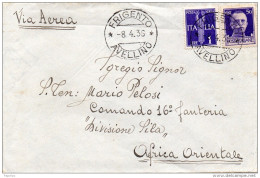 Via Aerea
FRIGENTO
-8.4.36
AVELLINO
POSTA AEREA
ITALIA
AVELLINO
Egregio Signor
S. Ten: Mario Pelosi
Comando 16ª fanteria
"Divisione Sila"
Africa Orientale